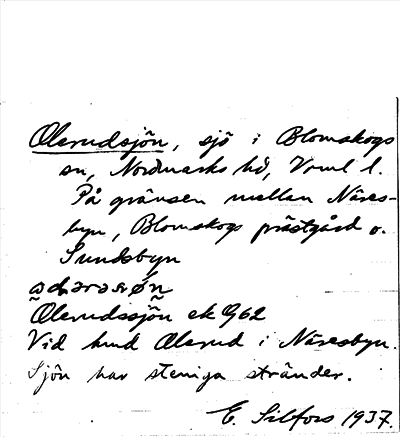 Olerudsjön, sjö i Blomskogs
sn, Nordmarks hd, Vrml l.
På gränsen mellan Näres-
byn, Blomskogs prästgård o.
Sundsbyn
Ölerudssjön ek 962
Vid hmd Olerud i Näresbyn.
Sjön har steniga stränder.
E. Silfors 1937.